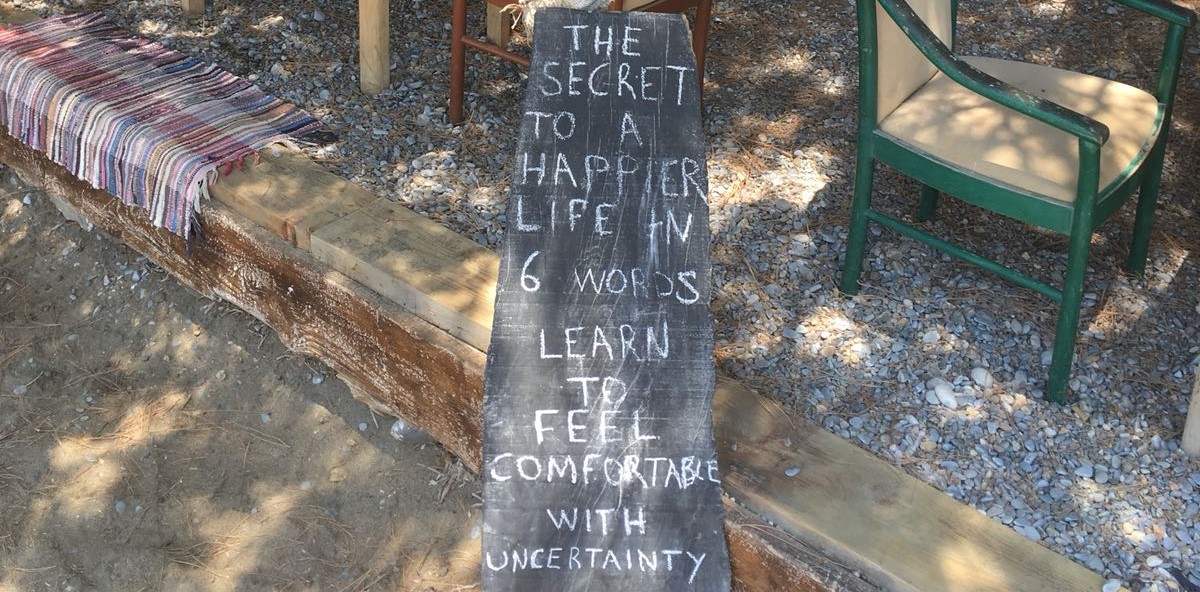 THE
SECRET
TO A
HAPPIER
LIFE IN
6 WORDS
LEARN
TO
FEEL
COMFORTABLE
WITH
UNCERTAINTY